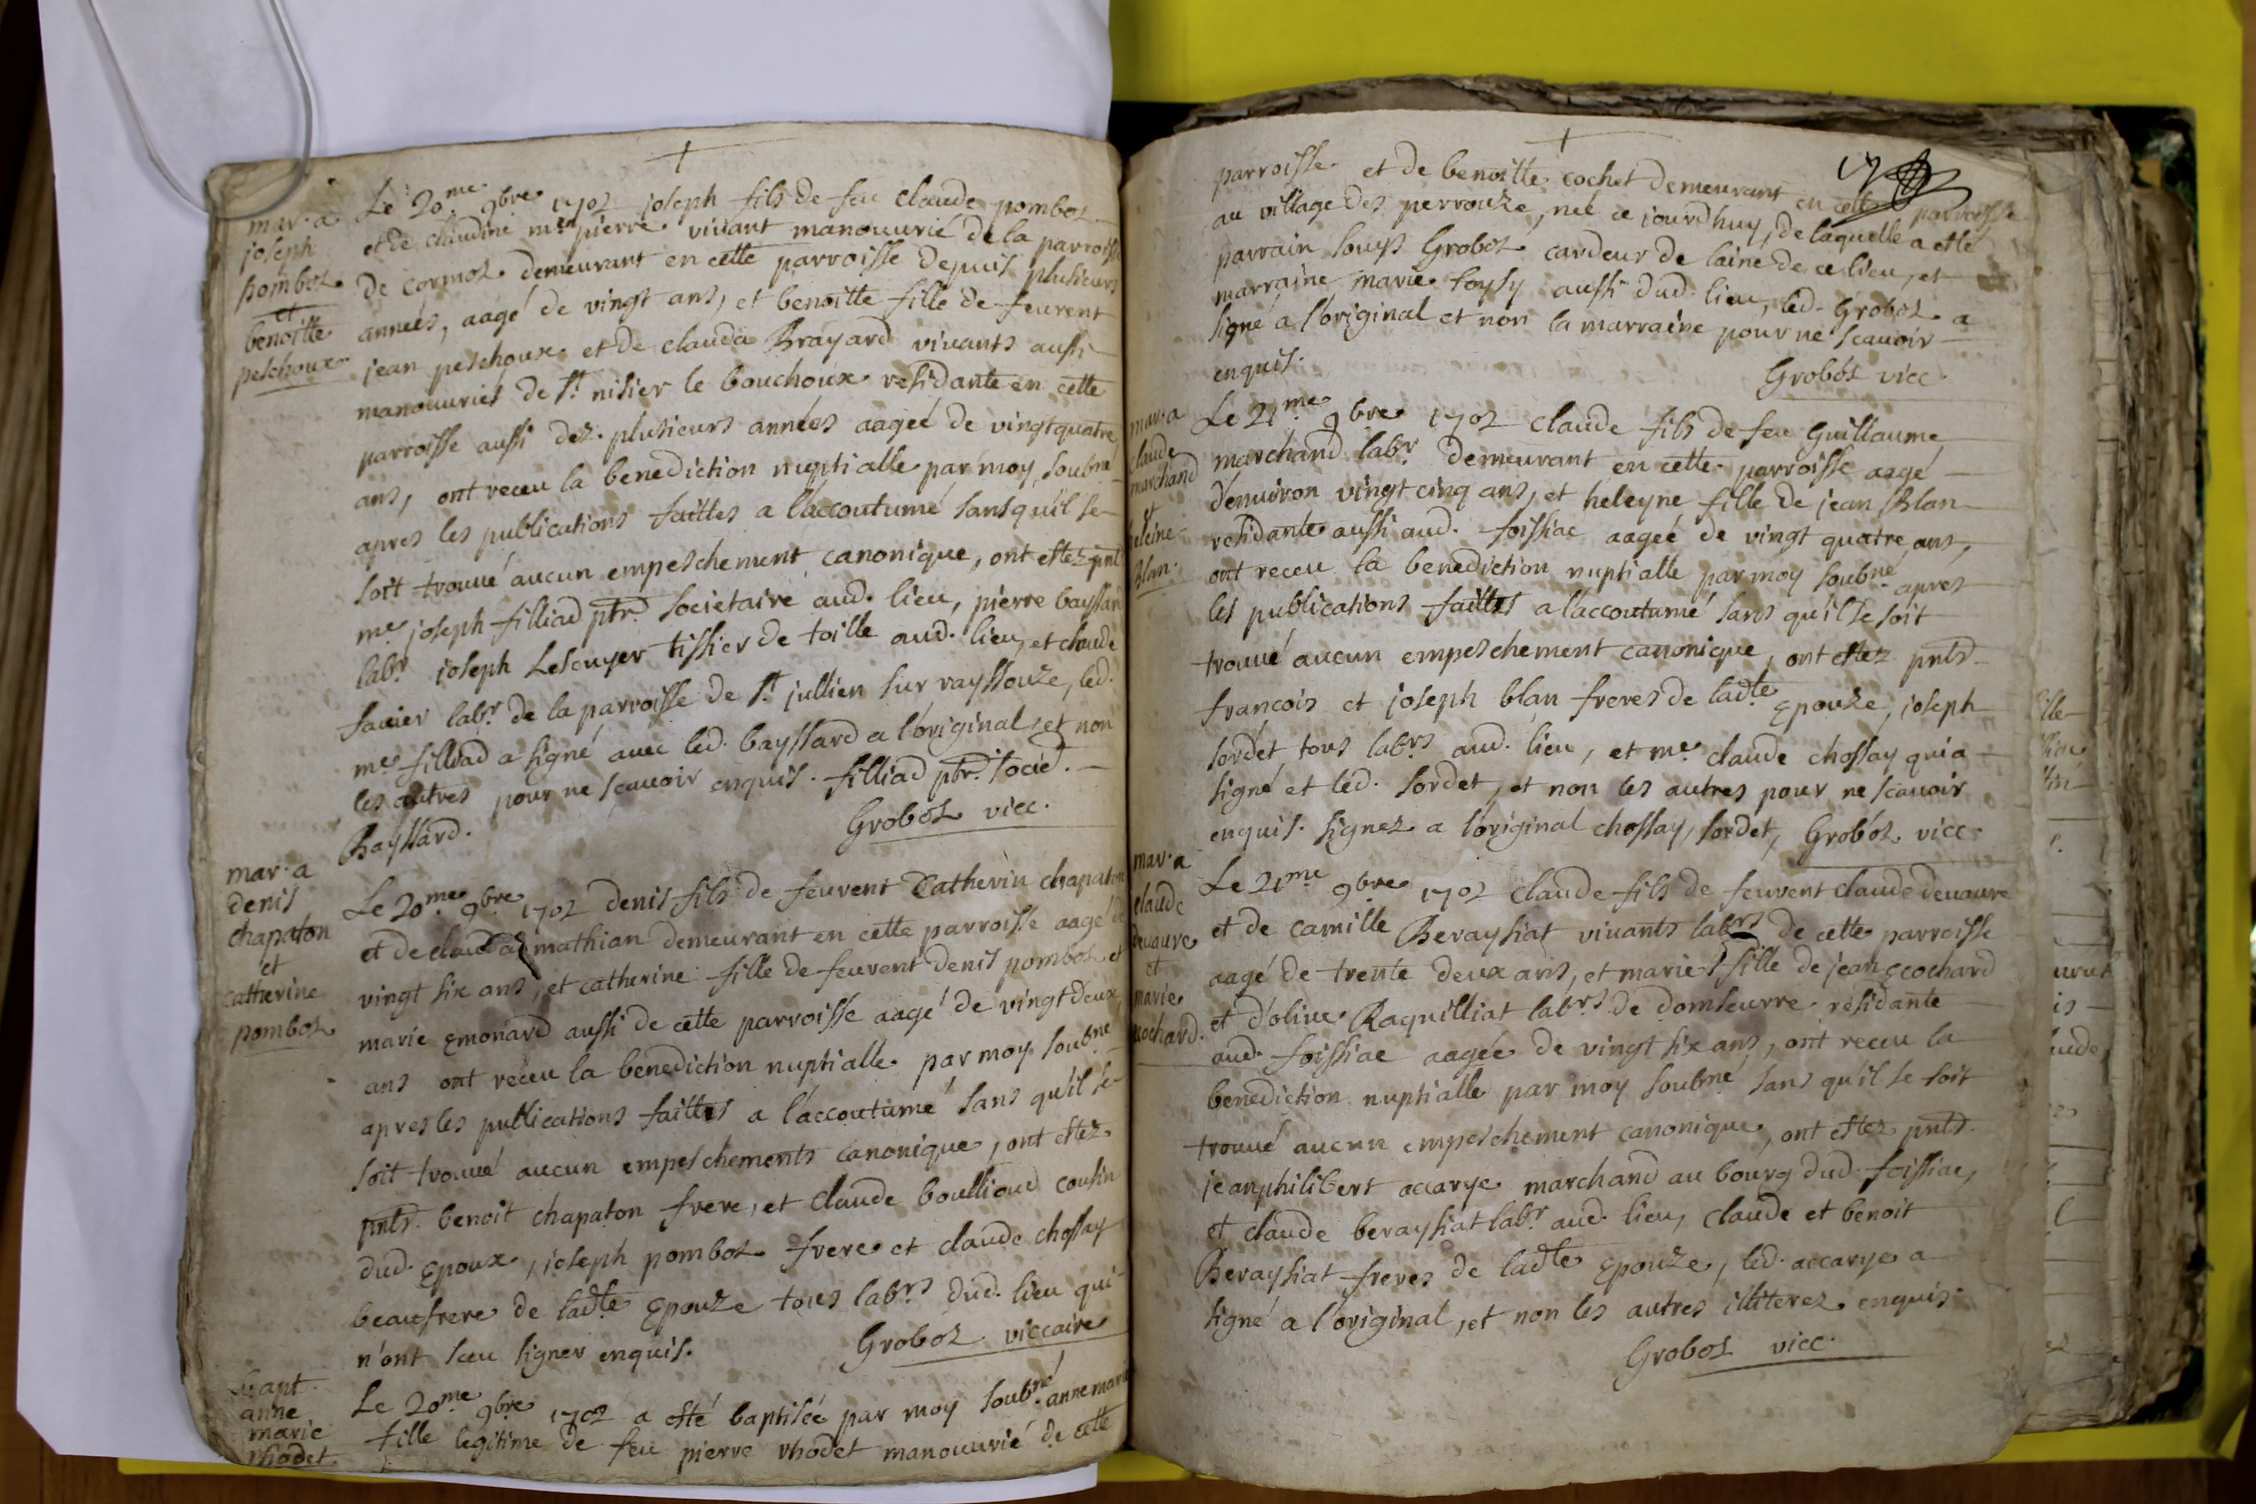 mar. a
joseph
pombot
et
benoitte
peschoux
Le 20me 9bre 1702 joseph fils de feu claude pombot
et de claudine mr pierre vivant manouurié de la parroisse
de cormos demeurant en cette parroisse depuis plusieurs
années, aagé de vingt ans, et benoitte fille de feurent
jean peschoux et de clauda Brayard vivants aussi
manouuriés de st. nisier le bouchoux residante en cette
parroisse aussi dez. plusieurs années aageé de vingtquatre
ans, ont receu la benediction nuptialle par moy soubné
apres les publications faittes a l'accoutumé sans qu'il se
soit trouué aucun empeschement canonique, ont estez pnts
me. joseph filliad ptr. societaire aud. lieu, pierre bayssard
labr. joseph Lescuyer tissier de toille aud. lieu, et claude
fauier labr. de la parroisse de st. jullien sur rayssouze, led.
me. filliad a signé auec led. bayssard a l'original, et non
les autres pour ne scauoir enquis. filliad ptr. socied.
Bayssard. Grobot vicc.
mar. a
denis
chapaton
et
catherine
pombot
Le 20me 9bre 1702 denis fils de feurent Catherin chapaton
et de claudaz mathian demeurant en cette parroisse aagé de
vingt six ans, et catherine fille de feurent denis pombot et
marie Emonard aussi de cette parroisse aagé de vingt deux
ans ont receu la benediction nuptialle par moy soubné
apres les publications faittes a l'accoutumé sans qu'il se
soit trouué aucun empeschements canonique, ont estez
pnts. benoit chapaton frere, et claude boullioud cousin
dud. Epoux, joseph pombot frere et claude chossay
beaufrere de ladte Epouze tous labrs dud. lieu qui
n'ont sceu signer enquis. Grobot viccaire
bapt.
anne
marie
rhodet
Le 20me 9bre 1702 a esté baptisée par moy soubné. annemarie
fille legitime de feu pierre rhodet manouurié de cette
17
parroisse et de benoitte cochet demeurant en cette parroisse
au village des perrouze, neé ce jourdhuy, de laquelle a esté
parrain louys Grobot cardeur de laine de ce lieu, et
marraine marie foysy aussi dud. lieu, led. Grobot a
signé a l'original et non la marraine pour ne scauoir
enquis. Grobot vicc.
mar. a
claude
marchand
et
heleine
Blan.
Le 21me 9bre 1702 claude fils de feu Guillaume
marchand labr. demeurant en cette parroisse aagé
d'enuiron vingt cinq ans, et heleyne fille de jean Blan
residante aussi aud. foissiac aageé de vingt quatre ans,
ont receu la benediction nuptialle par moy soubné apres
les publications faittes a l'accoutumé sans qu'il se soit
trouué aucun empeschement canonique, ont estez pnts.
francois et joseph blan freres de ladte Epouze, joseph
sordet tous labrs aud. lieu, et me. claude chossay qui a
signé et led. sordet, et non les autres pour ne scauoir
enquis. signez a l'original chossay, sordet, Grobot. vicc.
mar. a
claude
deuaure
et
marie
cochard.
Le 21me 9bre 1702 claude fils de feurent claude deuaure
et de camille Beraysiat vivants labrs de cette parroisse
aagé de trente deux ans, et marie fille de jean cochard
et d'oliue Raquilliat labrs de domseurre residante
aud. foissiac aagée de vingt six ans, ont receu la
benediction nuptialle par moy soubné sans qu'il se soit
trouué aucun empeschement canonique, ont estez pnts.
jeanphilibert accarye marchand au bourg dud. foissiac,
et claude beraysiat labr. aud. lieu, claude et benoit
Beraysiat freres de ladte Epouze, led. accarye a
signé a l'original, et non les autres illiterez enquis.
Grobot vicc.